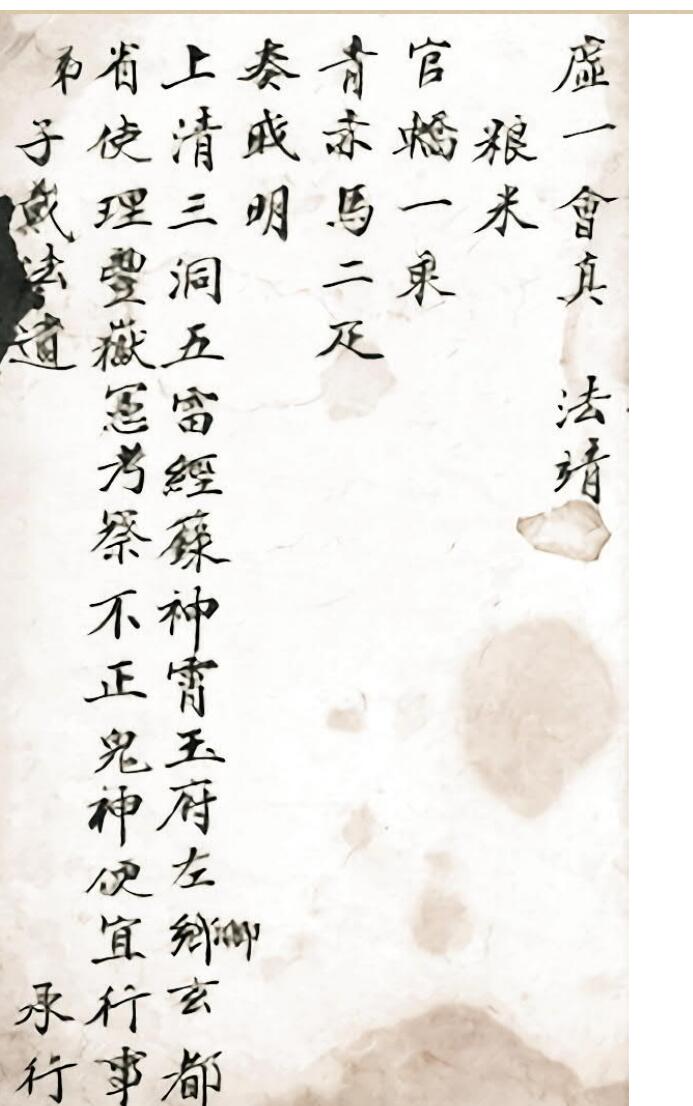 虛一會真 法靖
粮米
官轎一乘
青赤馬二疋
奏戓明
上清三洞五雷經籙神霄玉府左鄉卿玄都
省使理豐嶽憲考察不正鬼神便宜行事
弟子戴法道 承行